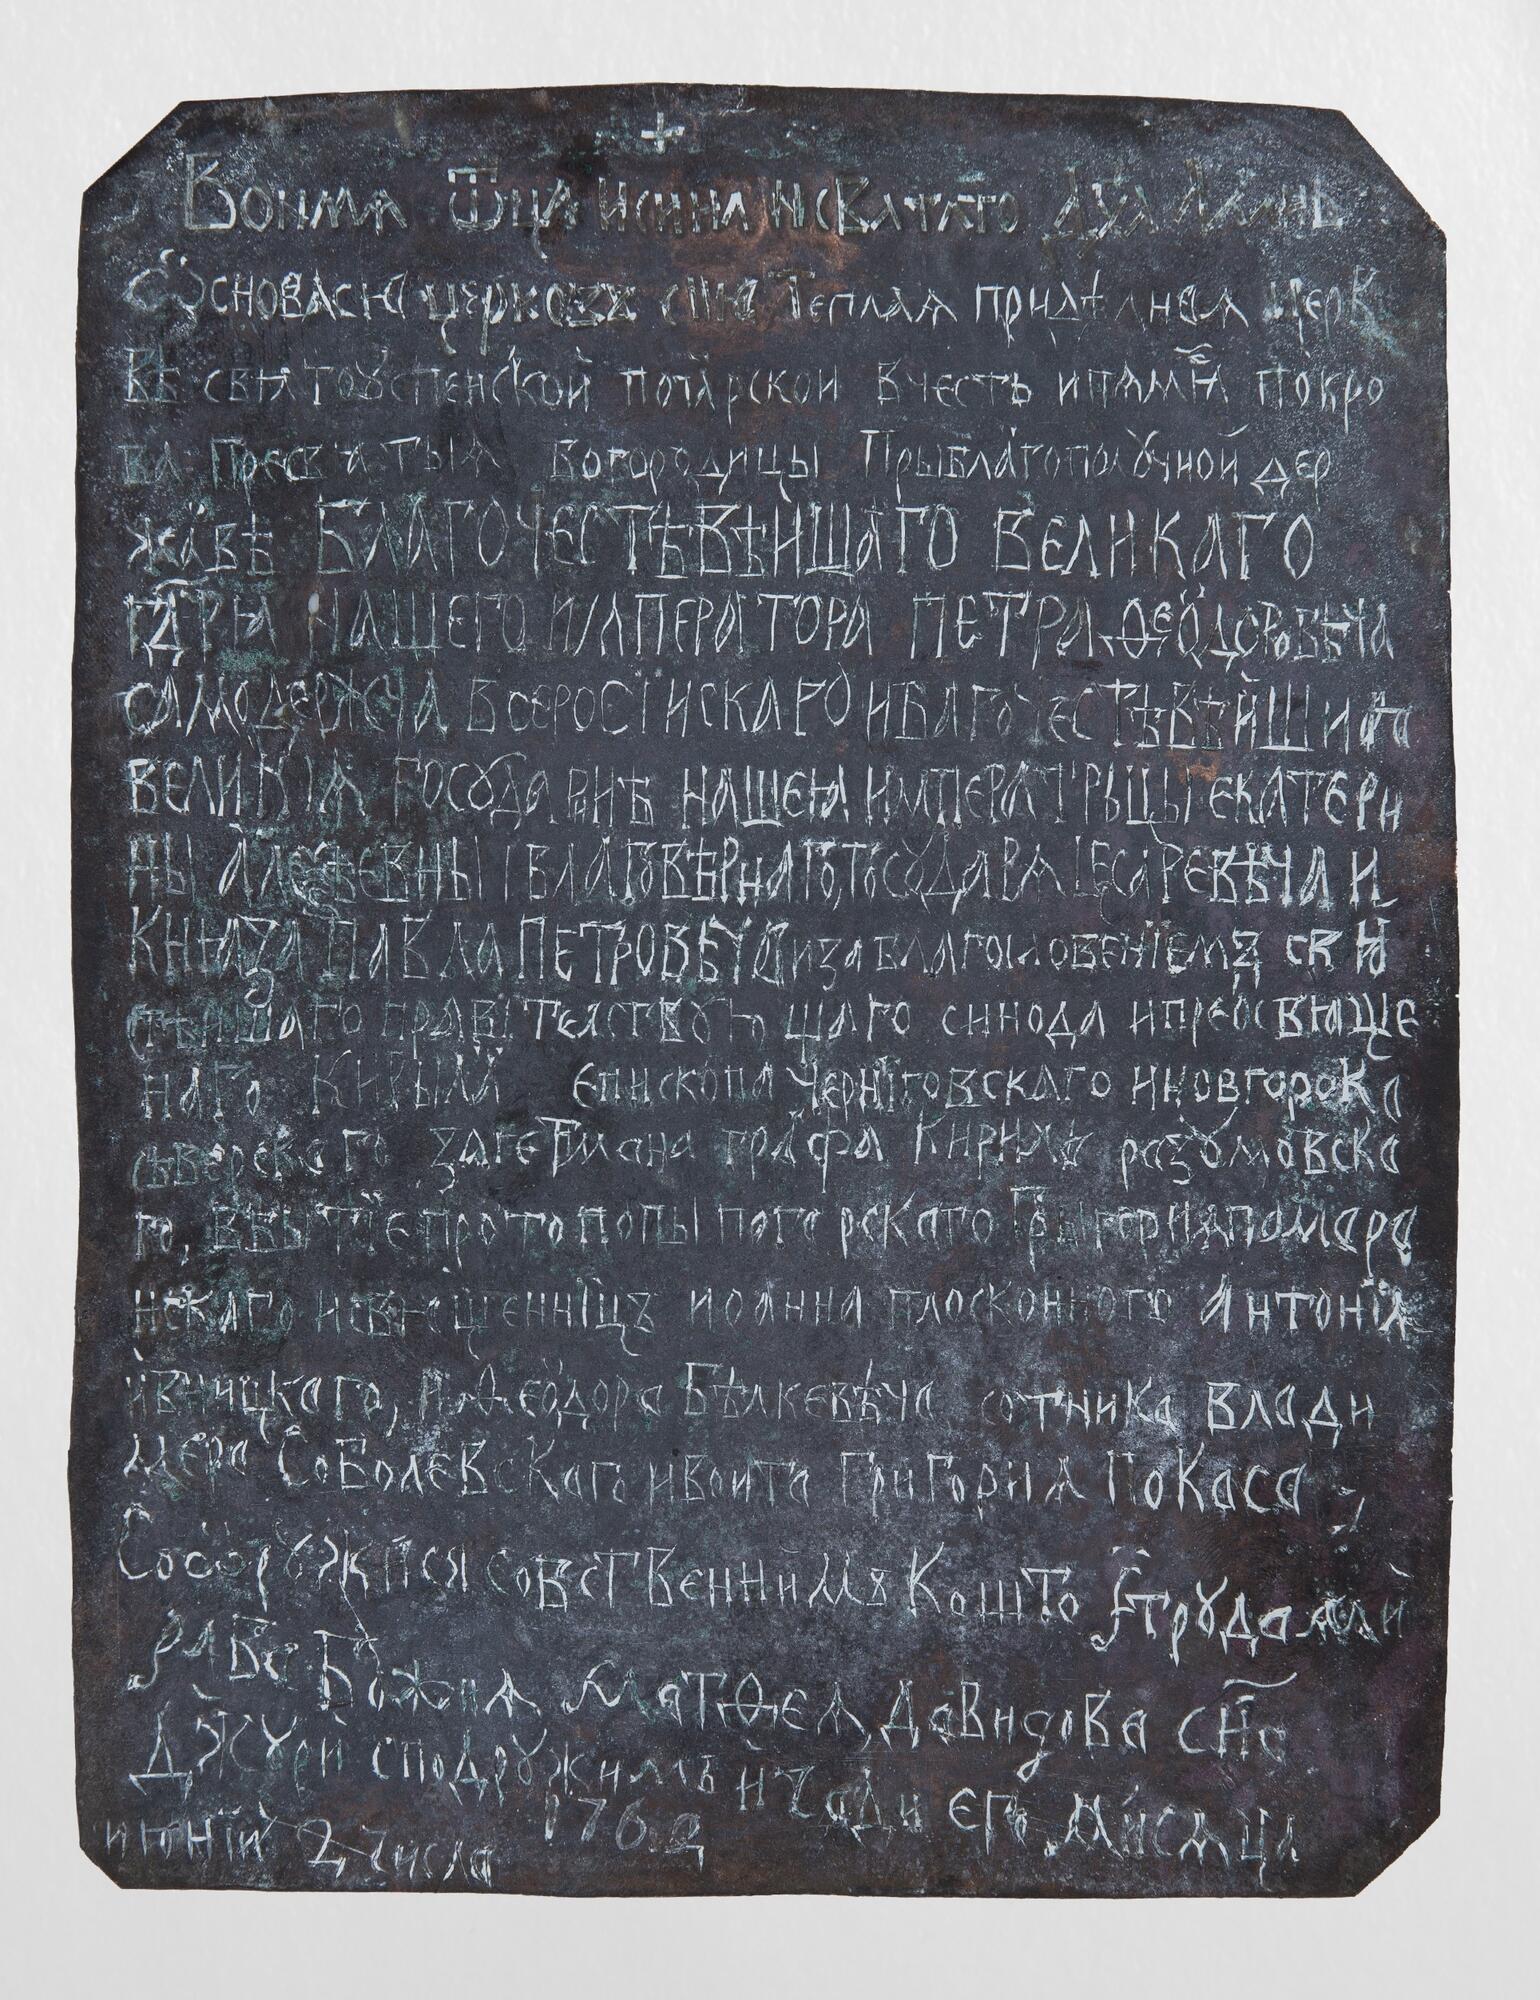 +
Воимѧ Ѿца исина исватаго Дꙋха Аминь
Ѡсновасꙗ церковъ сиꙗ Теплаѧ придѣлнаѧ церк
вѣ свꙗтоꙋспенской погарской вчесть ипамꙗ покро
ва Пресвꙗтыѧ Богородицы Прыблагополꙋчной дер
жавѣ БЛАГОЧЕСТѢВѢЙШАГО ВЕЛИКАГО
ГДРꙖ НАШЕГО ИМПЕРАТОРА ПЕТРА ѲЕОДОРОВѢЧА
САМОДЕРЖЧА ВСЕРОСІЙСКАГО ИБАГОЧЕСТѢВѢЙШИꙖ
ВЕЛИКІѦ ГОСꙊДАРИНѢ НАШЕꙖ ИМПЕРАТРЫЦЫ ЕКАТЕРИ
НЫ АЛЕѮЕВНЫ І БЛАГОВѢРНАГО ГОСꙊДАРѦ ЦЕСАРЕВѢЧА И
КНꙖЗА ПАВЛА ПЕТРОВѢЧА изаблагословениемъ свꙗ
тѣйшаго правителствꙋющаго синода ипреосвꙗще
наго Кирыла Епископа Чернѣговскаго иновгорока
сѣверскаго загетмана графа Кирилѣ разꙋмовска
го, вбытіе протопопы погарскаго Грыгориѧ помара
нскаго исвꙗщеннiцъ иоанна плосконного Антонiѧ
ивницкаго, и Ѳеодора Бѣлкевѣча сотника влади
мера Соболевскаго ивоита Григориѧ Покаса
Сооорꙋжисѧ собственнимъ кошто трꙋдами
раба Божиѧ Матѳеѧ Давидова сна
Джꙋри сподрꙋжиемъ ичади его мисѧца
июнїѧ 2 числа 1762